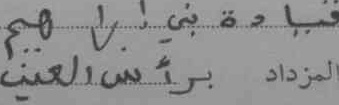 قيادة بني ابراهيم
المزداد برأس العين